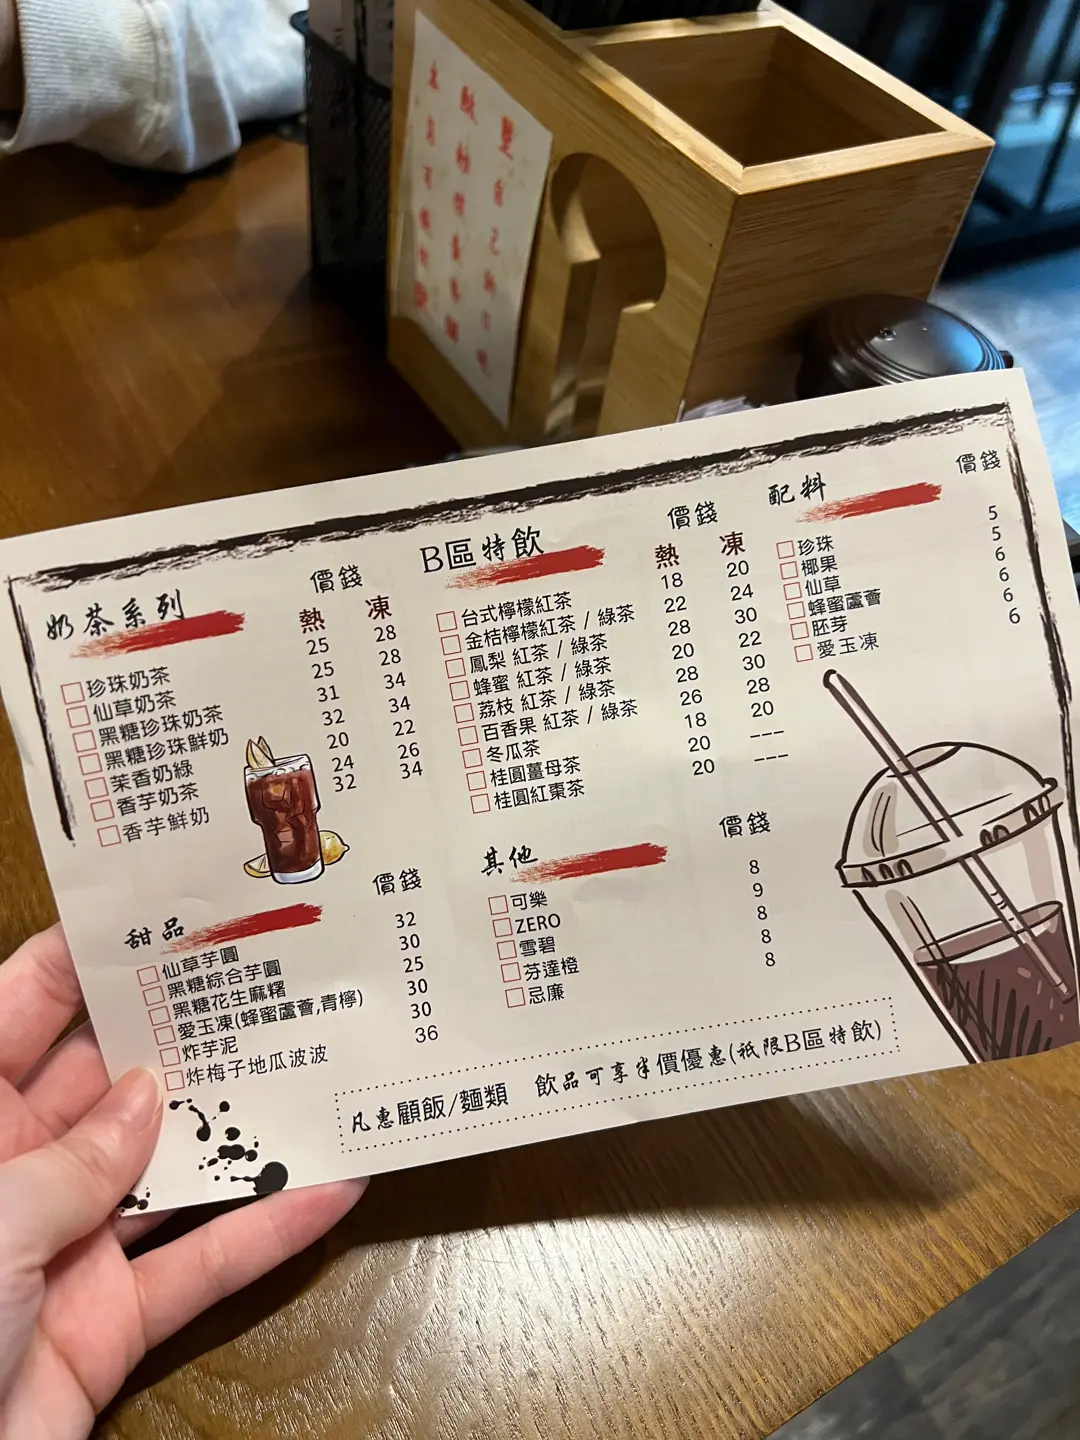 奶茶系列 價錢
熱 凍
珍珠奶茶 25 28
仙草奶茶 25 28
黑糖珍珠奶茶 31 34
黑糖珍珠鮮奶 32 34
茉香奶綠 20 22
香芋奶茶 24 26
香芋鮮奶 32 34
甜品 價錢
仙草芋圓 32
黑糖綜合芋圓 30
黑糖花生麻糬 25
愛玉凍(蜂蜜蘆薈,青檸) 30
炸芋泥 30
炸梅子地瓜波波 36
B區特飲 價錢
熱 凍
台式檸檬紅茶 18 20
金桔檸檬紅茶 / 綠茶 22 24
鳳梨 紅茶 / 綠茶 28 30
蜂蜜 紅茶 / 綠茶 20 22
荔枝 紅茶 / 綠茶 28 30
百香果 紅茶 / 綠茶 26 28
冬瓜茶 18 20
桂圓薑母茶 20 ---
桂圓紅棗茶 20 ---
其他 價錢
可樂 8
ZERO 9
雪碧 8
芬達橙 8
忌廉 8
配料 價錢
珍珠 5
椰果 5
仙草 6
蜂蜜蘆薈 6
胚芽 6
愛玉凍 6
凡惠顧飯/麵類 飲品可享半價優惠(祇限B區特飲)